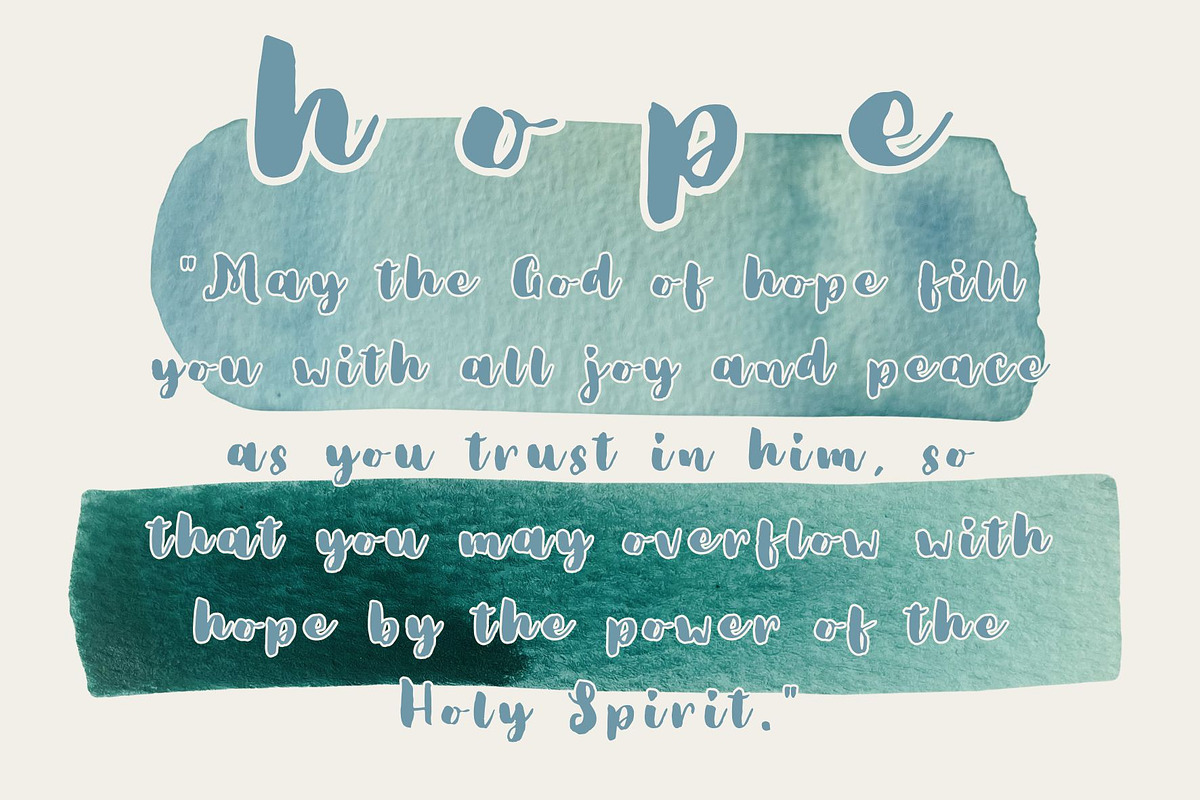 hope
"May the God of hope fill
you with all joy and peace
as you trust in him, so
that you may overflow with
hope by the power of the
Holy Spirit."